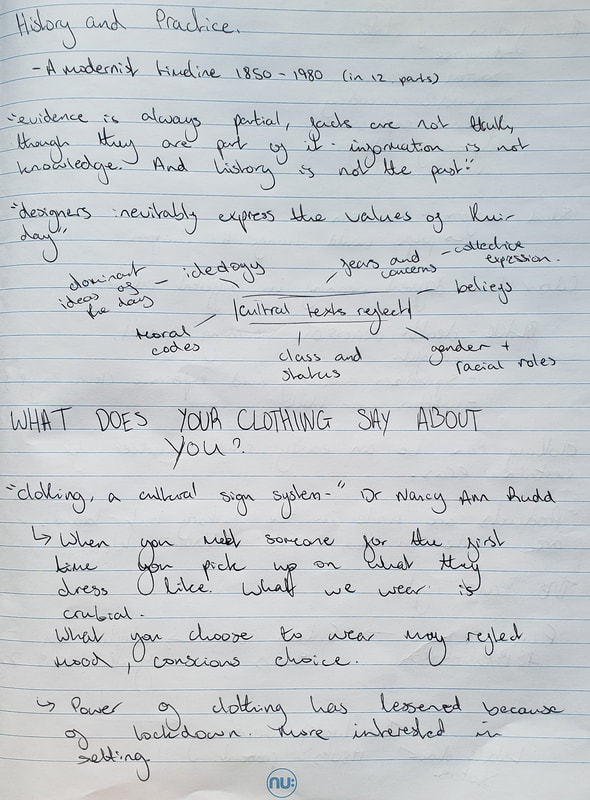 History and Practice.
- A modernist timeline 1850 - 1980 (in 12 parts)
"evidence is always partial, facts are not truth,
though they are part of it - information is not
knowledge. And history is not the past."
"designers inevitably express the values of their
day"
dominant
ideas of
the day
- ideology
fears and
concerns
- collective
expression.
beliefs
cultral texts reflect
moral
codes
class and
status
gender +
racial roles
WHAT DOES YOUR CLOTHING SAY ABOUT
YOU?
"clothing, a cultural sign system-" Dr Nancy Ann Rudd
↳ When you meet someone for the first
time you pick up on what they
dress like. What we wear is
crucial.
What you choose to wear may reflect
mood, conscious choice.
↳ Power of clothing has lessened because
of lockdown. More interested in
setting.
nu: